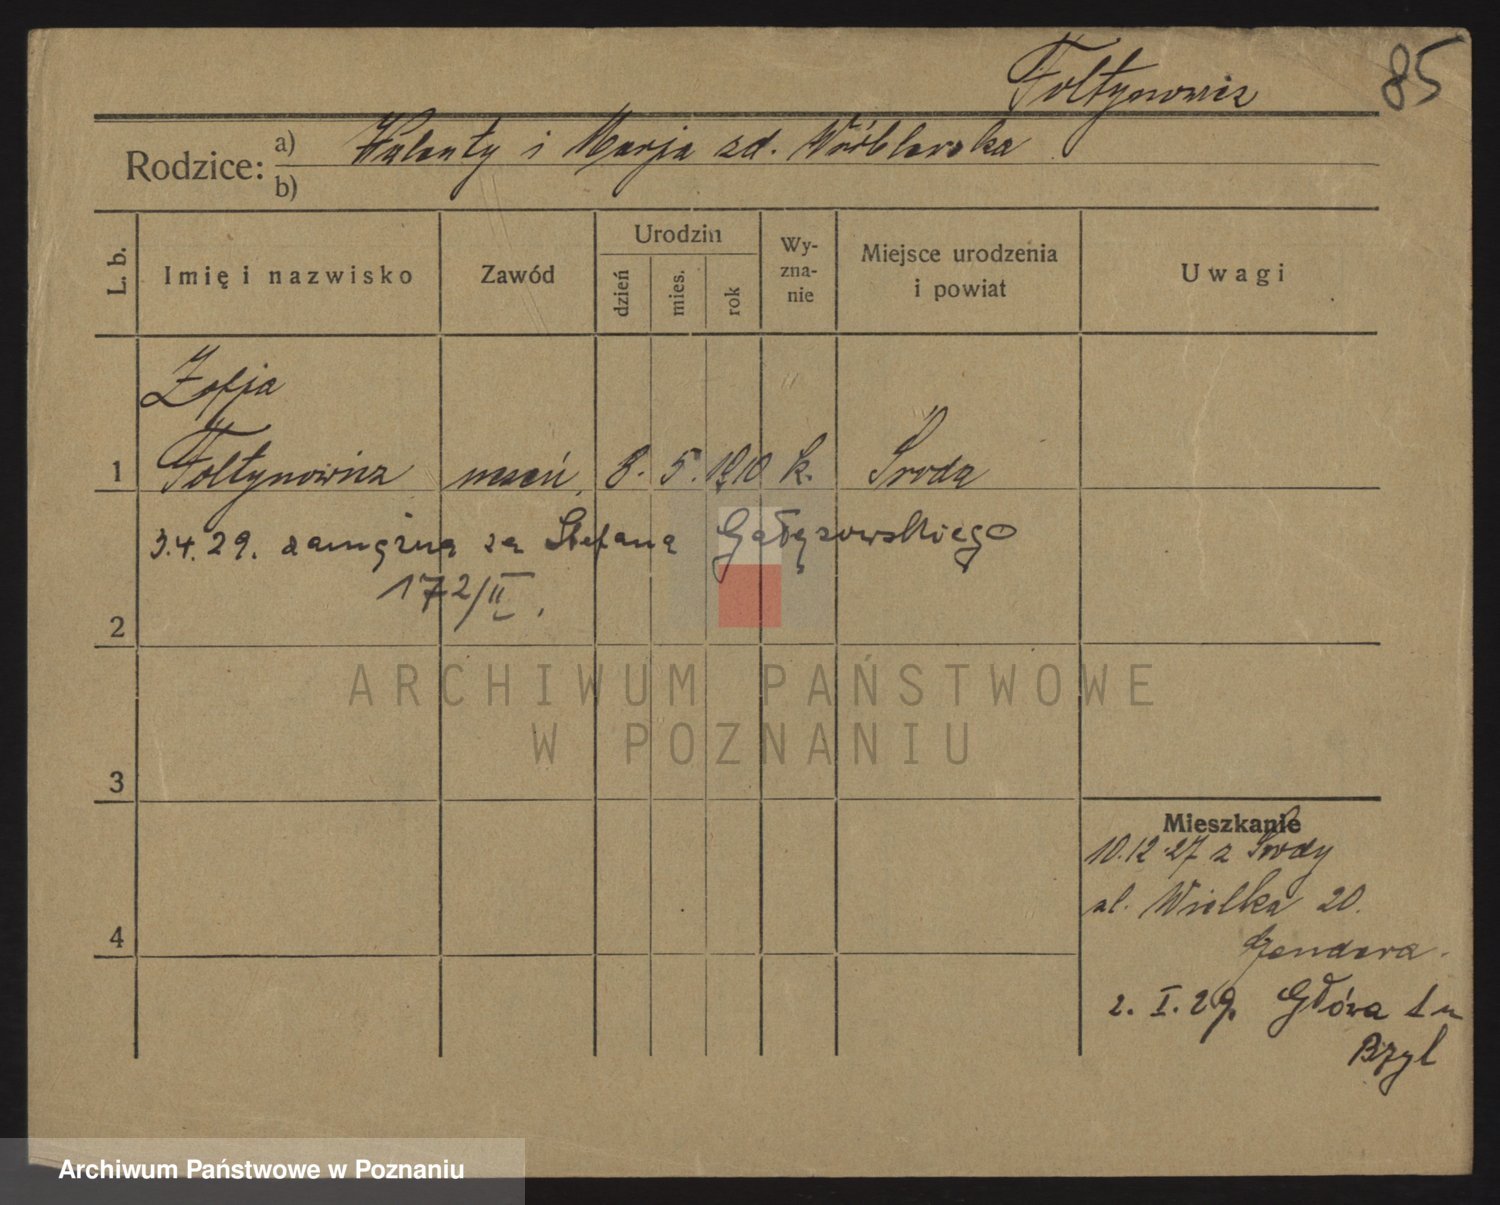 Fołtynowicz
85
Rodzice: a) Walenty i Marja zd. Wróblewska
b)
L. b. Imię i nazwisko Zawód Urodzin dzień mies. rok Wy-zna-nie Miejsce urodzenia i powiat Uwagi
Zofja
1 Fołtynowicz uczeń. 8. 5. 1910 k. Środa
3.4.29. zamężna za Stefana Gałęzowskiego
172/II.
2
ARCHIWUM PAŃSTWOWE
W POZNANIU
3
Mieszkanie
10.12.27 z Środy
ul. Wielka 20.
4
2. I. 29. Główna
Bzyl
Archiwum Państwowe w Poznaniu